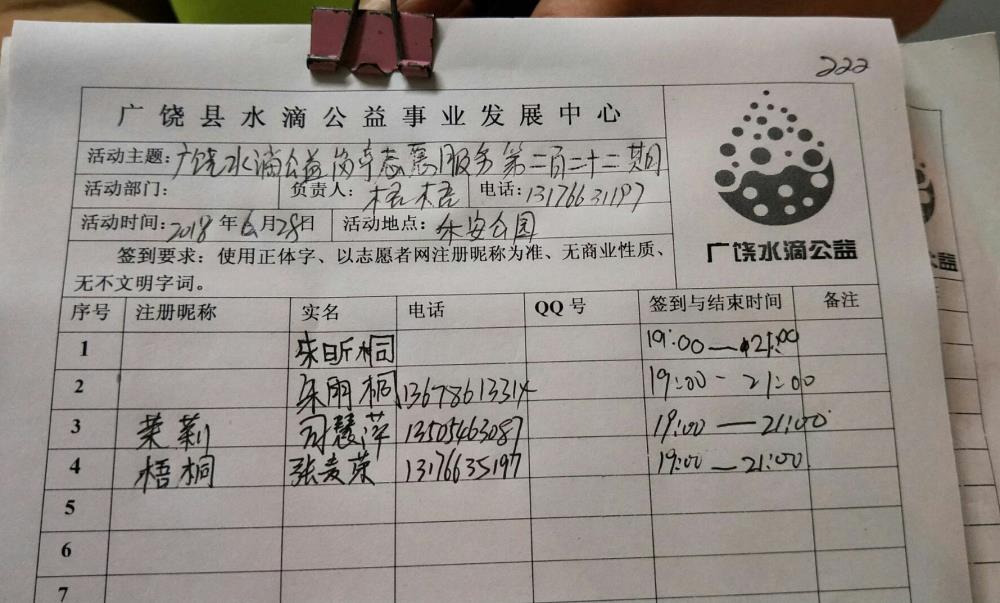 222
广饶县水滴公益事业发展中心
活动主题：广饶水滴公益岗亭志愿服务第二百二十二期
活动部门： 负责人：梧桐 电话：13176631197
活动时间：2018年6月28日 活动地点：乐安公园
签到要求：使用正体字、以志愿者网注册昵称为准、无商业性质、
无不文明字词。
广饶水滴公益
序号 注册昵称 实名 电话 QQ号 签到与结束时间 备注
1 宋昕桐 19:00—21:00
2 桐 13678613314 19:00-21:00
3 茉莉 慧萍 13505463087 19:00—21:00
4 梧桐 张麦荣 13176635197 19:00—21:00
5
6
7
公益